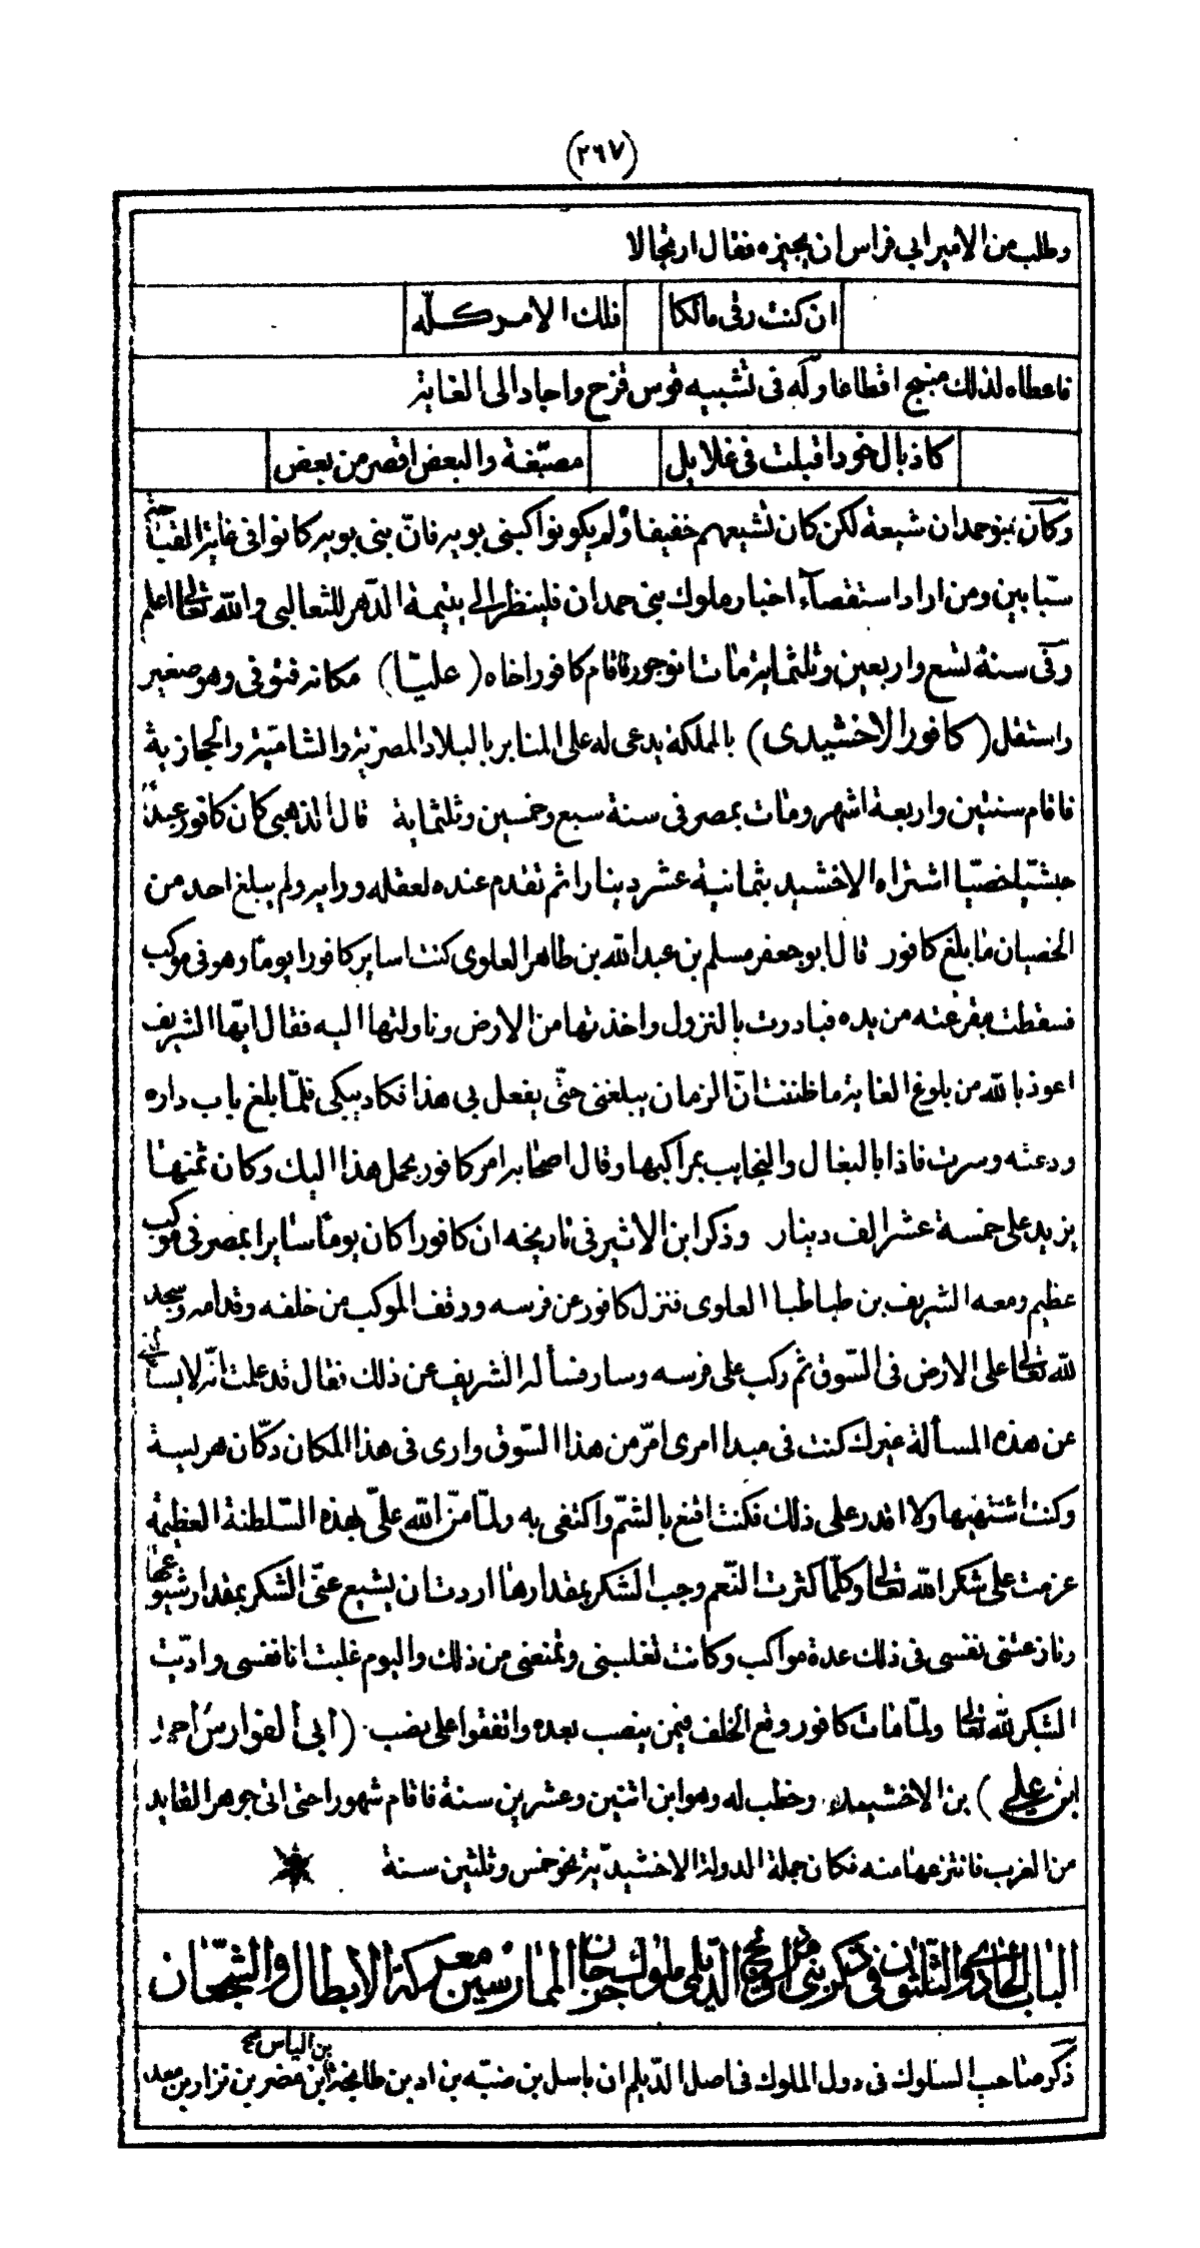 (٢٦٧)
وطلب من الامير ابي فراس ان يجيزه فقال ارتجالا
ان كنت رقى مالكا فلك الامر كلّه
فاعطاه لذلك منبج اقطاعا وله فى تشبيه قوس قزح واجاد الى الغاية
كاذيال خود اقبلت فى غلايل مصبّغة والبعض اقصر من بعض
وكان بنو حمدان شيعة لكن كان تشيعهم خفيفا ولم يكونوا كبنى بويه فانّ بنى بويه كانوا فى غاية القباحة
سبّابين ومن اراد استقصآء اخبار ملوك بنى حمدان فلينظر الى يتيمة الدّهر للثعالبى والله تعالى اعلم
وفى سنة تسع واربعين وثلثماية مات انوجور فاقام كافور اخاه (عليّا) مكانه فتوفى وهو صغير
واستقل (كافور الاخشيدى) بالمملكة يدعى له على المنابر بالبلاد المصرية والشاميّة والحجازية
فاقام سنتين واربعة اشهر ومات بمصر فى سنة سبع وخمسين وثلثماية قال الذهبى كان كافور عبدًا
حبشيّا خصيّا اشتراه الاخشيد بثمانية عشر دينارا ثم تقدم عنده لعقله ورايه ولم يبلغ احد من
الخصيان ما بلغ كافور قال ابو جعفر مسلم بن عبد الله بن طاهر العلوى كنت اساير كافورا يوما وهو فى موكب
فسقطت مقرعته من يده فبادرت بالنزول واخذتها من الارض وناولتها اليه فقال ايّها الشريف
اعوذ بالله من بلوغ الغاية ما ظننت انّ الزمان يبلغنى حتّى يفعل بى هذا فكاد يبكى فلمّا بلغ باب داره
ودعته وسرت فاذا بالبغال والنجايب بمراكبها وقال اصحابه امر كافور بحمل هذا اليك وكان ثمنها
يزيد على خمسة عشر الف دينار وذكر ابن الاثير فى تاريخه ان كافورا كان يوما سايرا بمصر فى موكب
عظيم ومعه الشريف بن طباطبا العلوى فنزل كافور عن فرسه ووقف الموكب من خلفه وقدامه وسجد
لله تعالى على الارض فى السّوق ثم ركب على فرسه وسار فسأله الشريف عن ذلك فقال قد علمت انّه لا يسألنى
عن هذه المسألة غيرك كنت فى مبدا امرى امرّ من هذا السّوق وارى فى هذا المكان دكّان هريسة
وكنت اشتهيها ولا اقدر على ذلك فكنت اقنع بالشّم واكتفى به ولمّا منّ الله علىّ بهذه السّلطنة العظيمة
عزمت على شكر الله تعالى وكلّما كثرت النّعم وجب الشكر بمقدارها اردت ان يشيع عنّى الشكر بمقدار شيوعها
ونازعتنى نفسى فى ذلك عدة مواكب وكانت تغلبنى وتمنعنى من ذلك واليوم غلبت انا نفسى وادّيت
الشكر لله تعالى ولمّا مات كافور وقع الخلف فيمن ينصب بعده واتفقوا على نصب (ابى الفوارس احمد
ابن على) بن الاخشيد وخطب له وهو ابن اثنين وعشرين سنة فاقام شهورا حتى اتى جوهر القايد
من الغرب فانتزعها منه فكان جملة الدولة الاخشيديّة نحو خمس وثلثين سنة
الباب الحادى والثلثون فى ذكر بنى مرداويج الديلمى ملوك جرجان الممارسين معركة الابطال والشجعان
ذكر صاحب السلوك فى دول الملوك فى اصل الدّيلم ان باسل بن ضبّه بن اد بن طابخة بن الياس صح ابن مضر بن نزار بن معد